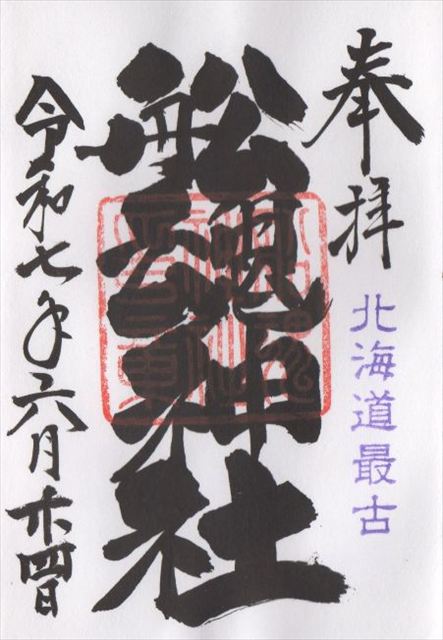 奉拝
北海道最古
船魂神社
令和七年六月廿四日